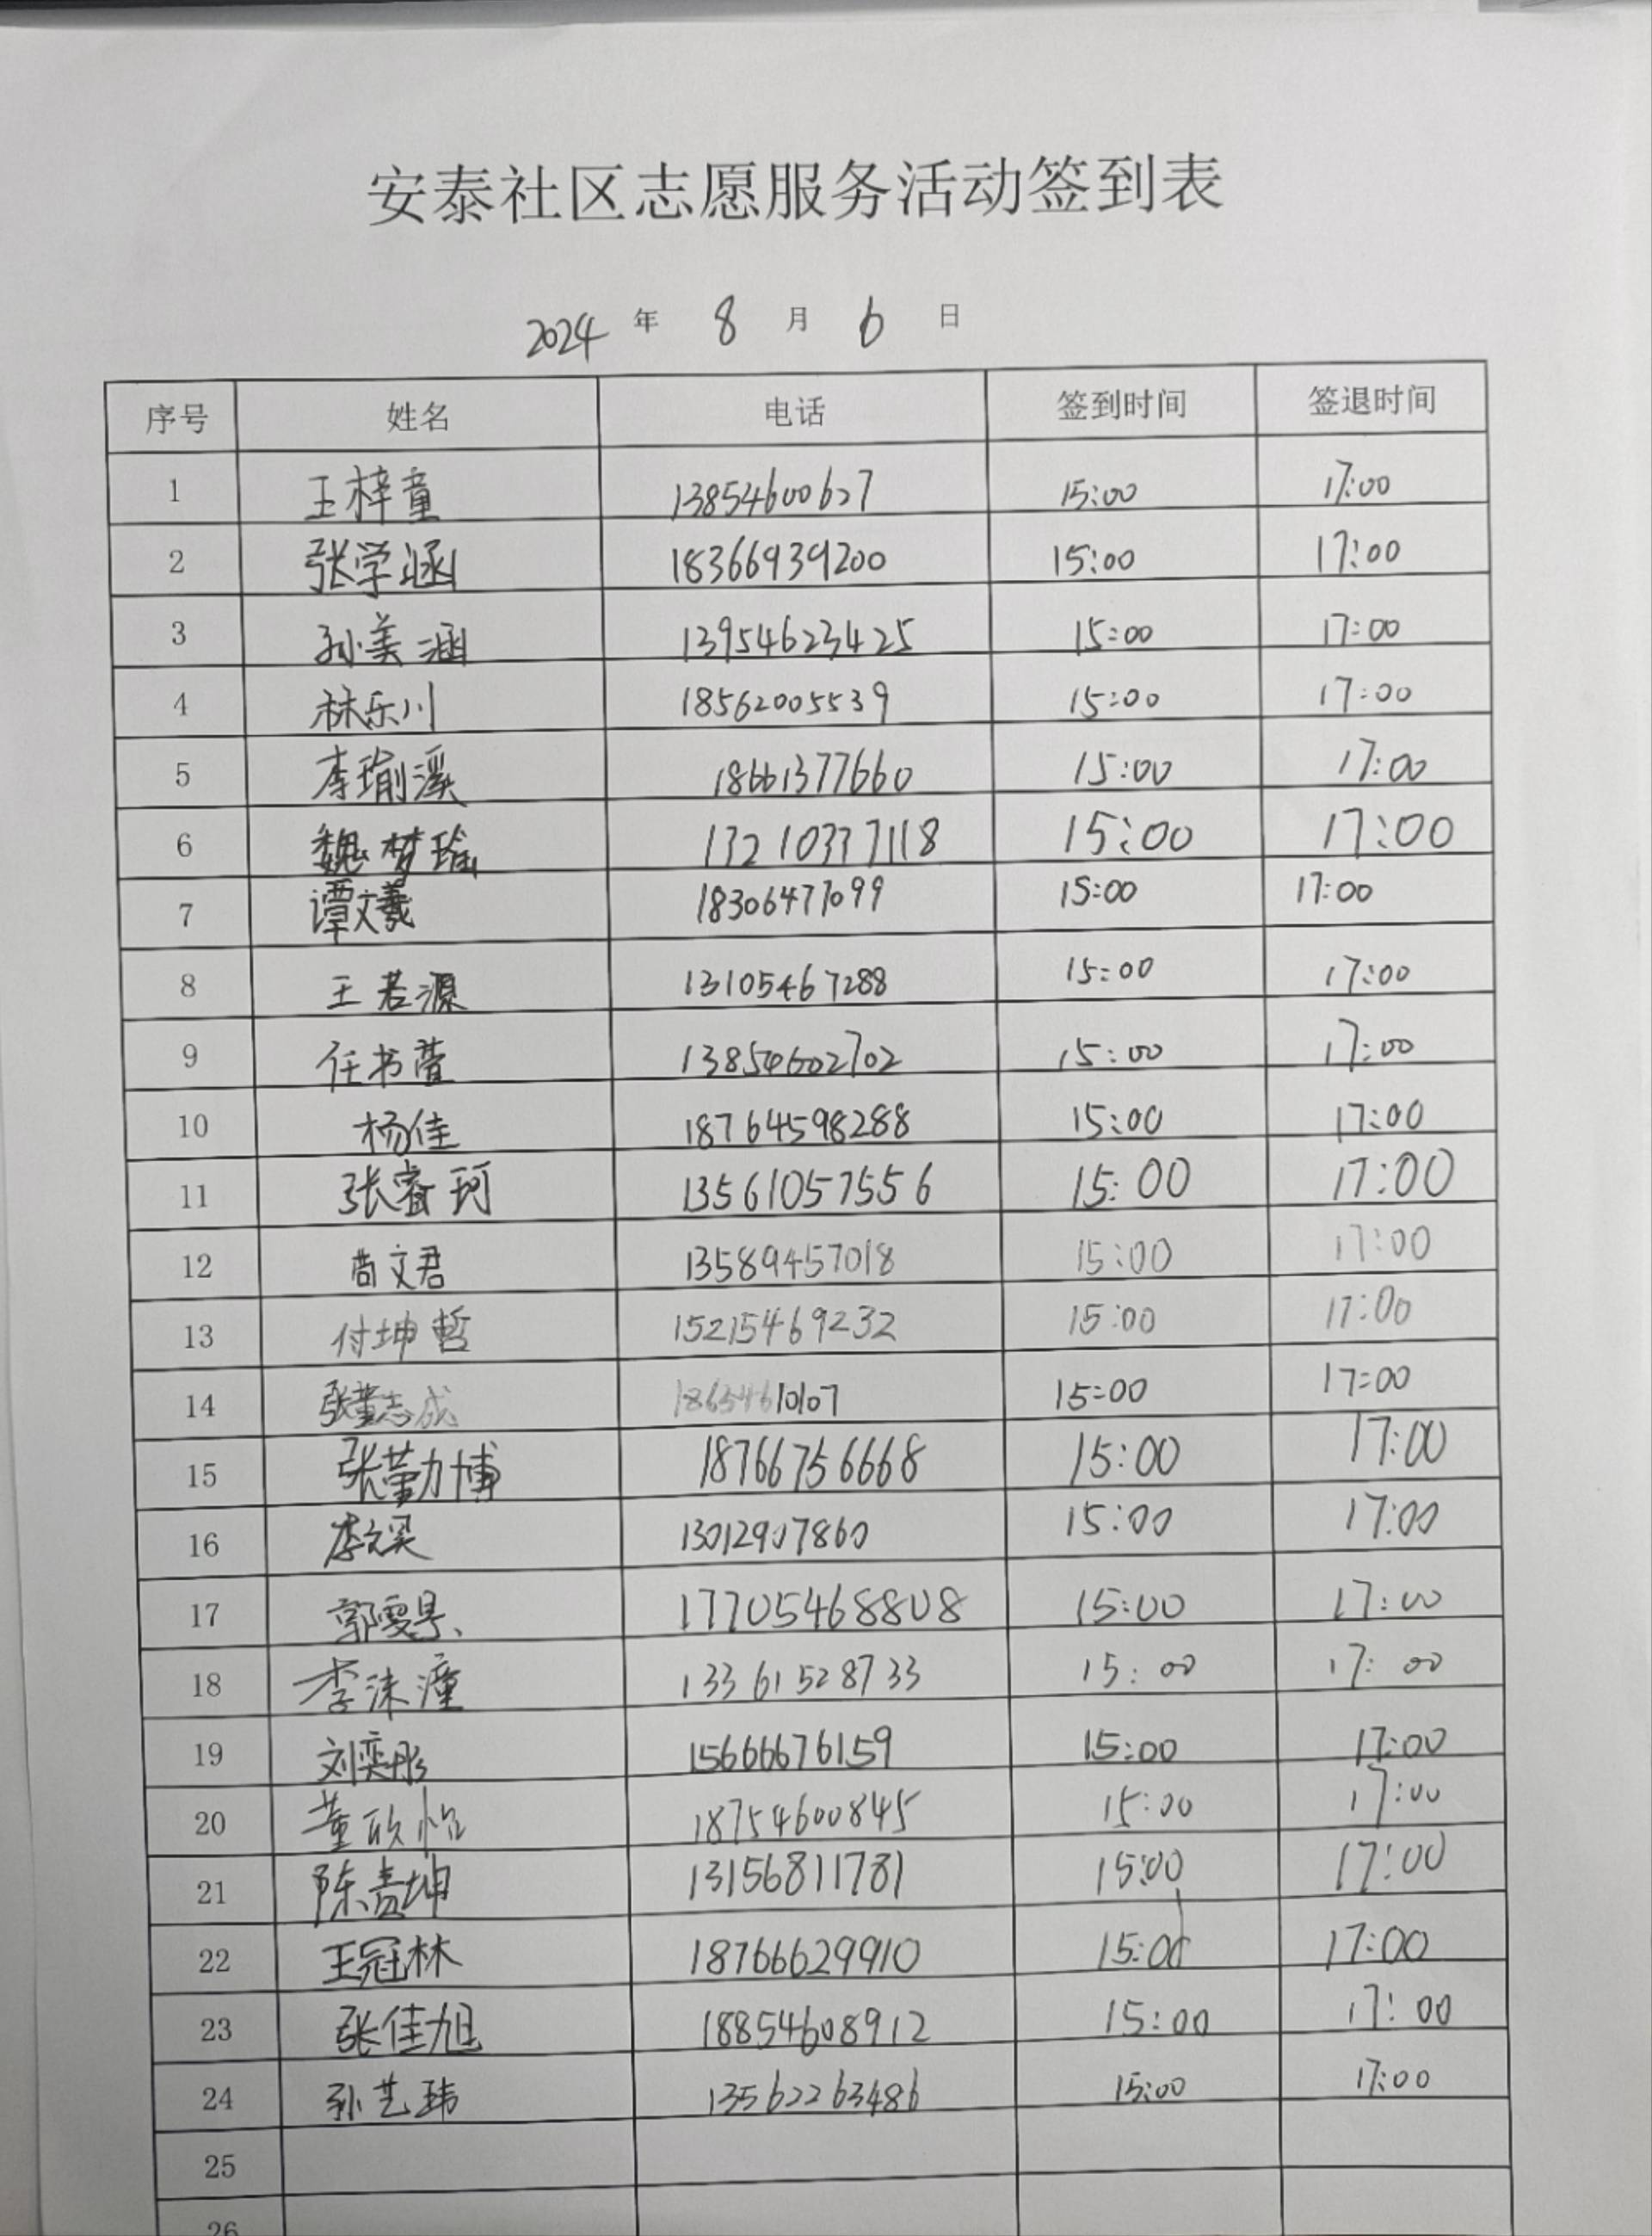 安泰社区志愿服务活动签到表
2024 年 8 月 6 日
序号 姓名 电话 签到时间 签退时间
1 王梓童 13854600627 15:00 17:00
2 张学涵 18366939200 15:00 17:00
3 孙美涵 13954623425 15:00 17:00
4 林乐川 18562005539 15:00 17:00
5 李瑜溪 18661377660 15:00 17:00
6 魏梦瑜 13210337118 15:00 17:00
7 谭文羲 18306477099 15:00 17:00
8 王若源 13105467288 15:00 17:00
9 任书萱 13854602702 15:00 17:00
10 杨佳 18764598288 15:00 17:00
11 张睿珂 13561057556 15:00 17:00
12 尚文君 13589457018 15:00 17:00
13 付坤哲 15215469232 15:00 17:00
14 张董志成 18654610107 15:00 17:00
15 张董力博 18766756668 15:00 17:00
16 13012907860 15:00 17:00
17 17705468808 15:00 17:00
18 李沫潼 13361528733 15:00 17:00
19 刘奕彤 15666676159 15:00 17:00
20 董欣怡 18754600845 15:00 17:00
21 陈贵坤 13156811781 15:00 17:00
22 王冠林 18766629910 15:00 17:00
23 张佳旭 18854608912 15:00 17:00
24 孙艺玮 13562263486 15:00 17:00
25
26